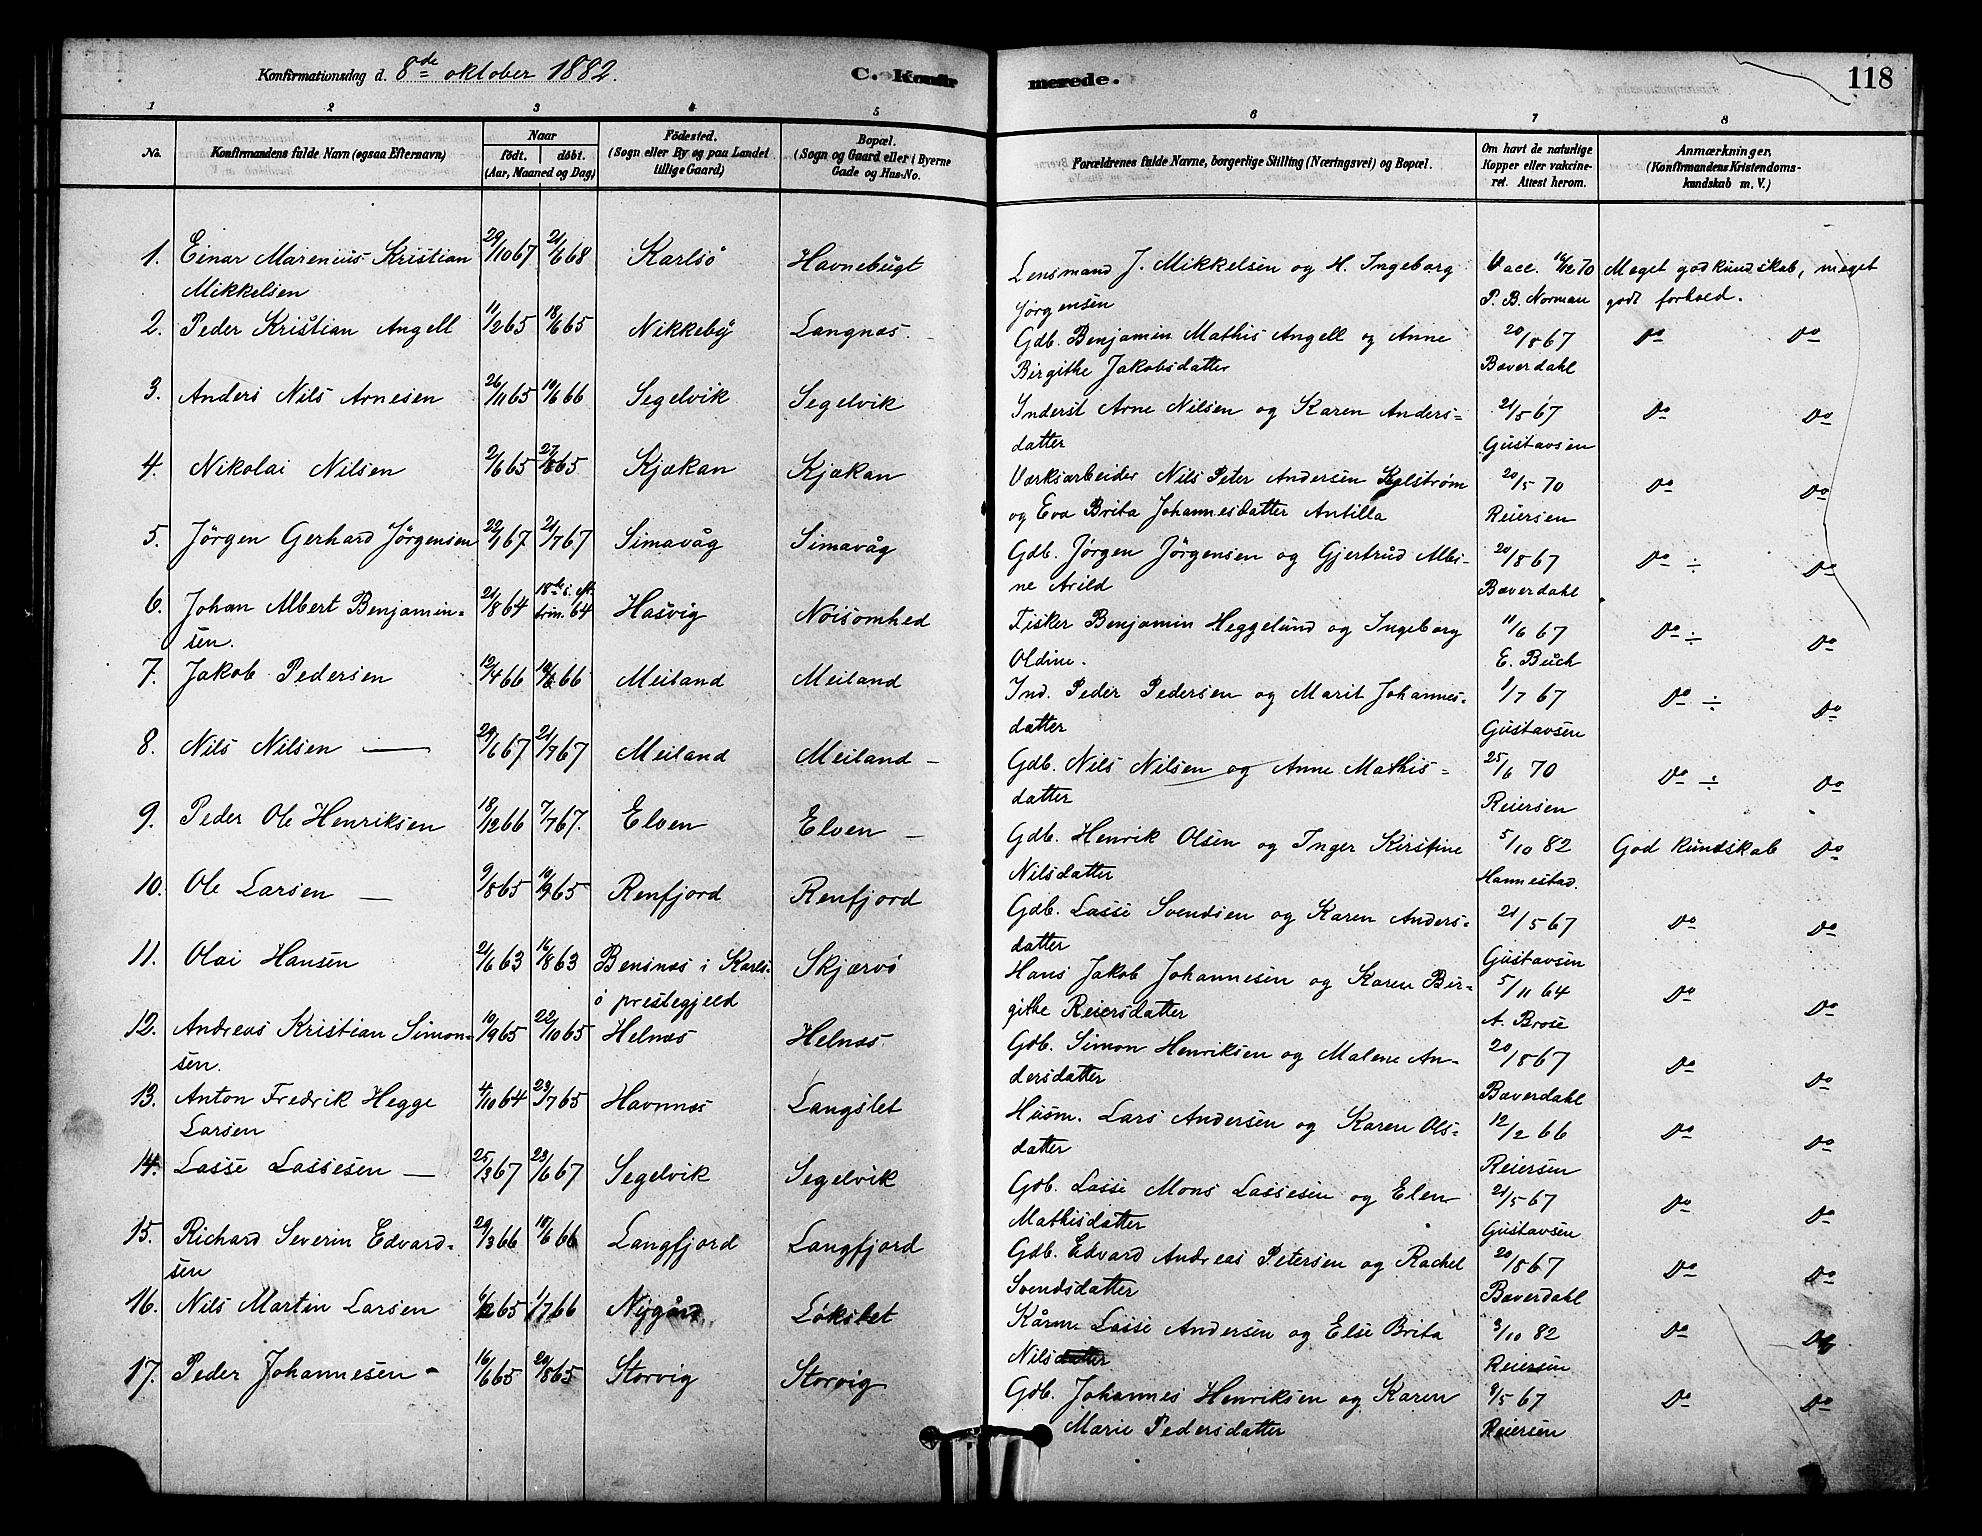 Konfirmationsdag d. 8de oktober 1882.
C. Konfirmerede.
118
1 2 3 4 5 6 7 8
No.
Konfirmandens fulde Navn (ogsaa Efternavn)
Naar
födt. döbt.
(Aar, Maaned og Dag)
Födested.
(Sogn eller By og paa Landet
tillige Gaard)
Bopæl.
(Sogn og Gaard eller i Byerne
Gade og Hus-No.
Forældrenes fulde Navne, borgerlige Stilling (Næringsvei) og Bopæl.
Om havt de naturlige
Kopper eller vakcine-
ret. Attest herom.
Anmærkninger,
(Konfirmandens Kristendoms-
kundskab m. V.)
1. Einar Marenius Kristian 29/10 67 21/6 68 Karlsö Havnebugt Lensmand J. Mikkelsen og H. Ingeborg Vacc. 70 Meget god kundskab, meget
Mikkelsen Jørgensen P. B. Norman godt forhold.
2. Peder Kristian Angell 11/2 65 18/6 65 Nikkeby Langnæs. Gdb. Benjamin Mathis Angell og Anne 20/8 67 Do Do
Birgithe Jakobsdatter Baverdahl
3. Anders Nils Arnesen 26/11 65 10/6 66 Segelvik Segelvik Inderst Arne Nilsen og Karen Anders= 21/5 67 Do Do
datter Gustavsen
4. Nikolai Nilsen 2/6 65 27/8 65 Kjækan Kjækan Værksarbeider Nils Peter Andersen 20/5 70 Do Do
og Eva Brita Johannesdatter Antilla Reiersen
5. Jörgen Gerhard Jörgensen 22/1 67. 21/7 67 Simavåg Simavåg Gdb. Jörgen Jörgensen og Gjertrud Albi- 20/8 67 Do ÷ Do
ne Arild Baverdahl
6. Johan Albert Benjamin= 21/8 64 18de s. eft. trin. 64 Hasvig Nöisomhed Fisker Benjamin Heggelund og Ingeborg 11/6 67 Do ÷ Do
sen. Oldine. E. Buch
7. Jakob Pedersen 12/4 66 10/6 66 Meiland Meiland Ind. Peder Pedersen og Marit Johannes- 1/7 67 Do ÷ Do
datter Gustavsen
8. Nils Nilsen — 29/1 67 21/7 67 Meiland Meiland – Gdb. Nils Nilsen og Anne Mathis= 25/6 70 Do ÷ Do
datter Reiersen
9. Peder Ole Henriksen 18/12 66 7/7 67. Elven Elven – Gdb. Henrik Olsen og Inger Kirstine 5/10 82 God kundskab Do
Nilsdatter Hannestad.
10. Ole Larsen — 9/8 65 10/9 65 Renfjord Renfjord Gdb. Lasse Svendsen og Karen Anders- 21/5 67 Do Do
datter Gustavsen
11. Olai Hansen 21/6 63 16/8 63 Bensnæs i Karls- Skjærvö Hans Jakob Johannesen og Karen Bir- 5/11 64 Do Do
ö prestegjeld githe Reiersdatter A. Brose
12. Andreas Kristian Simon= 10/9 65 22/10 65 Helnæs Helnæs Gdb. Simon Henriksen og Malene An- 20/8 67 Do Do
sen. dersdatter Baverdahl
13. Anton Fredrik Hegge 4/10 64 23/7 65 Havnnæs Langslet Husm. Lars Andersen og Karen Ols- 12/2 66 Do Do
Larsen datter Reiersen
14. Lasse Lassesen — 25/3 67 23/6 67 Segelvik Segelvik Gdb. Lasse Mons Lassesen og Elen 21/5 67 Do Do
Mathisdatter Gustavsen
15. Richard Severin Edvard= 29/3 66 10/6 66 Langfjord Langfjord Gdb. Edvard Andreas Petersen og Rachel 20/8 67 Do Do
sen Svendsdatter Baverdahl
16. Nils Martin Larsen 6/12 65 1/7 66 Nygård Løkslet Lasse Andersen og Else Brita 3/10 82 Do Do
Nilsdatter Reiersen
17. Peder Johannesen - 16/6 65 20/8 65 Storvig Storvig Gdb. Johannes Henriksen og Karen 9/5 67 Do Do
Marie Pedersdatter Reiersen